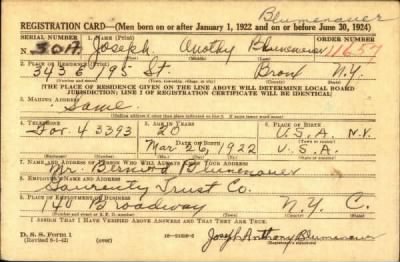 Blumenauer
REGISTRATION CARD—(Men born on or after January 1, 1922 and on or before June 30, 1924)
SERIAL NUMBER 1. NAME (Print) ORDER NUMBER
N 301A Joseph Anothy Blumenauer 11657
(First) (Middle) (Last)
2. PLACE OF RESIDENCE (Print)
343 E 195 St. Bronx N.Y.
(Number and street) (Town, township, village, or city) (County) (State)
[THE PLACE OF RESIDENCE GIVEN ON THE LINE ABOVE WILL DETERMINE LOCAL BOARD
JURISDICTION; LINE 2 OF REGISTRATION CERTIFICATE WILL BE IDENTICAL]
3. MAILING ADDRESS
Same
[Mailing address if other than place indicated on line 2. If same insert word same]
4. TELEPHONE 5. AGE IN YEARS 6. PLACE OF BIRTH
For. 4 3393 20 U.S.A. N.Y.
DATE OF BIRTH
Mar 26, 1922 U.S.A.
(Exchange) (Number) (Mo.) (Day) (Yr.) (State or country)
7. NAME AND ADDRESS OF PERSON WHO WILL ALWAYS KNOW YOUR ADDRESS
Mr. Bernard Blumenauer
8. EMPLOYER'S NAME AND ADDRESS
Guarenty Trust Co.
9. PLACE OF EMPLOYMENT OR BUSINESS
140 Broadway N.Y. C.
(Number and street or R. F. D. number) (Town) (County) (State)
I AFFIRM THAT I HAVE VERIFIED ABOVE ANSWERS AND THAT THEY ARE TRUE.
D. S. S. Form 1
(Revised 6-1-42) (over) Joseph Anthony Blumenauer